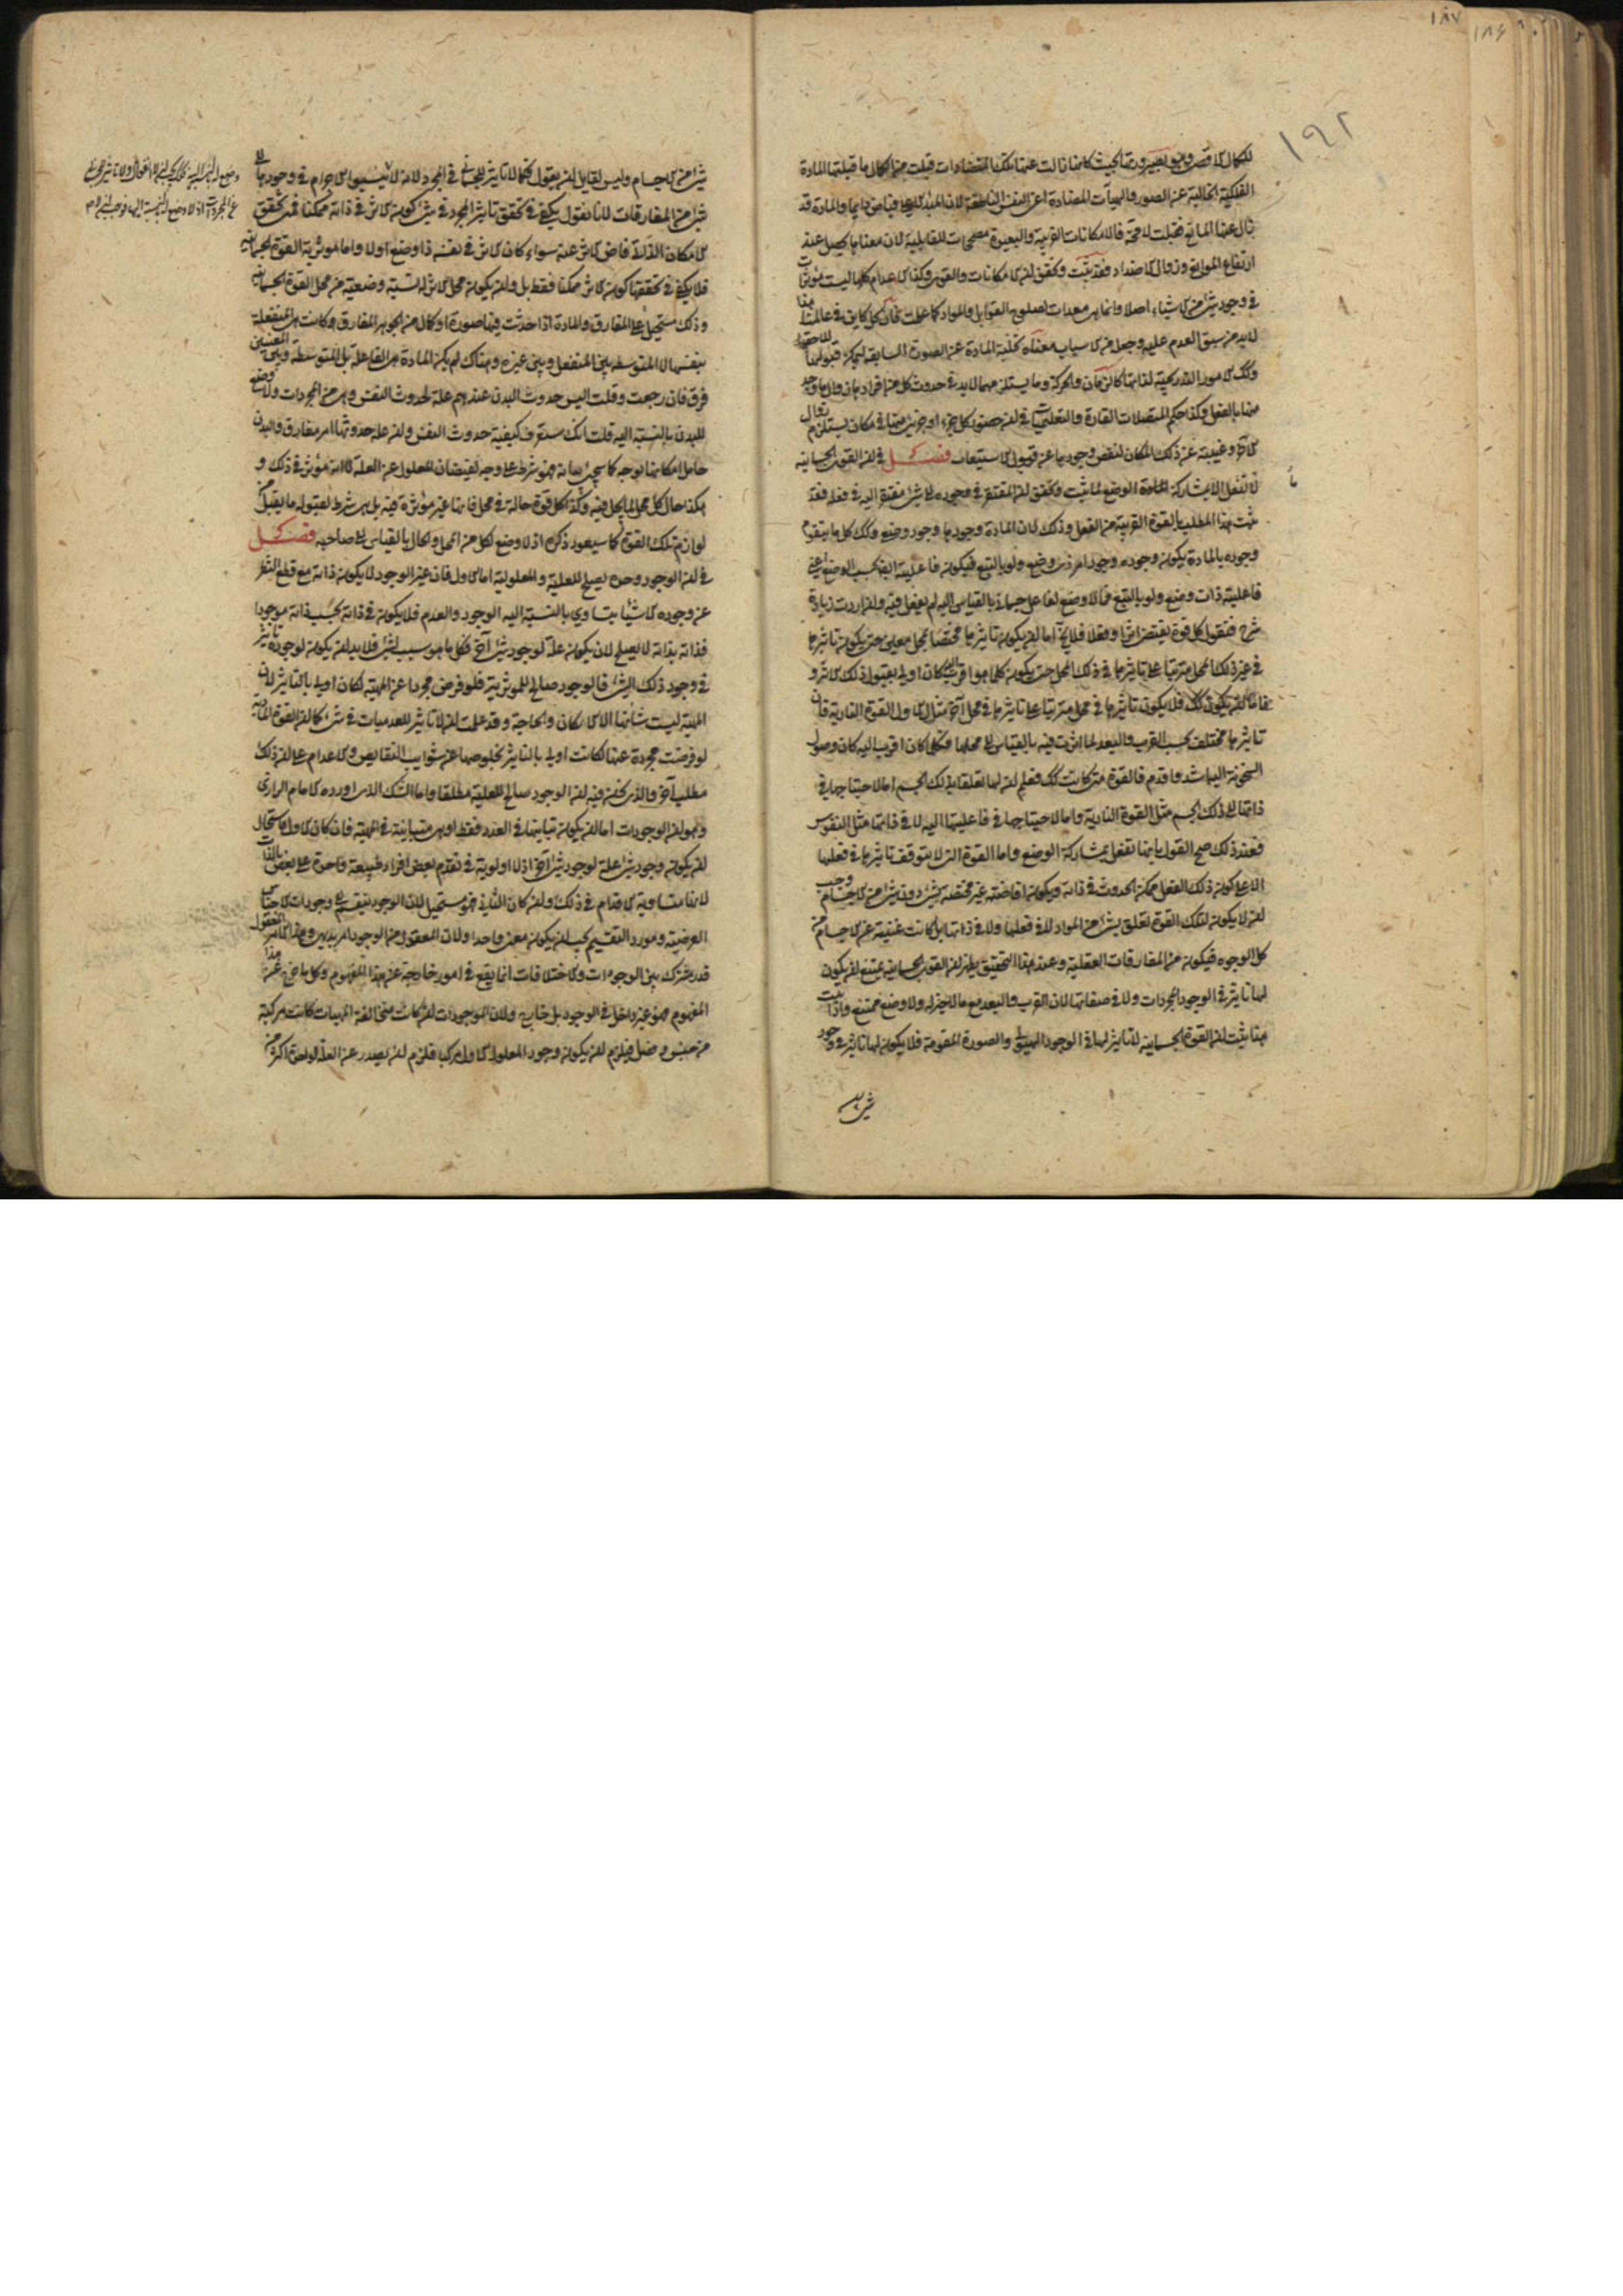 ١٨٧
١٨٦
١٩٢
للكمال الاقصى وهو بعينه ورتها بحيث كانها زالت عنها تلك المتضادات قبلت من الكمال ما قبلتها المادة
الفلكية الخالية عن الصور والهيآت المضادة اعنى النفس الناطقة لان المبدء الاعلى فياض دايما والمادة قد
زال عنها المانع فقبلت لا محة فالامكانات القريبة والبعيدة مصححات للقابلية لان معناها يحصل عند
ارتفاع الموانع وزوال الاضداد فقد ثبت وتحقق ان الامكانات والقوى وكذا الاعدام كلها ليست مؤثرات
فى وجود شئ من الاشياء اصلا وانما هى معدات لصلوح القوابل والمواد كما علمت فان كل كاين فى عالمنا هذا
لابد من سبق العدم عليه وجعل من الاسباب معناه تخلية المادة عن الصورة السابقة ليمكن قبولها للاحقة
وكك الامور التدريجية لذاتها كالزمان والحركة وما يستلزمهما لابد فى حدوث كل من افرادها زوال ما وجد
منها بالفعل وكذا حكم المتصلات القارة والتعليميات فى ان حضور كل جزء او جزئى منها فى مكان يستلزم زوال
الآخر وغيبته عن ذلك المكان لنقص وجودها عن قبول الاستيعاب فصل فى ان القوى الجسمانية
لا تفعل الا بمشاركة المادة الوضع لما ثبت وتحقق ان المفتقر فى وجوده الى شئ مفتقر اليه فى فعله فقد
ثبت هذا المطلب بالقوة القريبة من الفعل وذلك لان المادة وجودها وجود وضعى وكك كل ما يتقوم
وجوده بالمادة يكون وجوده وجود امر ذى وضع ولو بالتبع فيكون فاعليته ايضا بحسب الوضع اعنى
فاعليته ذات وضع ولو بالتبع فما لا وضع لفاعل جسمانى بالقياس اليه لم يفعل فيه وان اردت زيادة
شرح فنقول كل قوة يقتضى اثرا وفعلا فلا يخ اما ان يكون تاثيرها مختصا بمحل معين حتى يكون تاثيرها
فى غير ذلك المحل مترتبا على تاثيرها فى ذلك المحل حتى يكون كلما هو اقرب اليه كان اولى بقبول ذلك الاثر و
اما ان لا يكون كك فلا يكون تاثيرها فى محل مترتبا على تاثيرها فى محل آخر مثال الاول القوة النارية فان
تاثيرها مختلف بحسب القرب والبعد لما اثرت فيه بالقياس الى محلها فكلما كان اقرب اليه كان وصول
السخونة اليها اشد واقدم فالقوة متى كانت كك فعلم ان لها تعلقا بذلك الجسم اما لاحتياجها فى
ذاتها الى ذلك الجسم مثل القوة النارية واما لاحتياجها فى فاعليتها اليه لا فى ذاتها مثل النفوس
فعند ذلك صح القول بانها تفعل بمشاركة الوضع واما القوة التى لا يتوقف تاثيرها فى فعلها
الا على كون ذلك الفعل ممكن الحدوث فى ذاته ويكون افاضته غير مختصة بشئ دون شئ من الاجسام وجب
ان لا يكون لتلك القوة تعلق بشئ من المواد لا فى فعلها ولا فى ذاتها بل كانت غنية عن الاجسام من
كل الوجوه فيكون من المفارقات العقلية وعند هذا التحقيق يظهر ان القوى الجسمانية يمتنع ان يكون
لها تاثير فى الوجود المجردات ولا فى صفاتها لان القرب والبعد مع ما لا حيز له ولا وضع ممتنع واذا ثبت
هنا يثبت ان القوة الجسمانية لا تاثير لها فى الوجود الهيولى والصورة المقومة فلا يكون لها تاثير فى وجود
شئ من
شئ من الاجسام وليس لقايل ان يقول كما لا تاثير للجسمانى فى المجرد لانه لا نسبة الاجرام فى وجودها الى
شئ من المفارقات لانا نقول يكفى فى تحقق تاثير المجرد فى شئ كون الاثر فى ذاته ممكنا فمتى تحقق
الامكان الذاتى فاض الاثر عنه سواء كان الاثر فى نفسه ذا وضع اولا واما مؤثرية القوة الجسمانية
فلا يكفى فى تحققها كون الاثر ممكنا فقط بل وان يكون محل الاثر له نسبة وضعية من محل القوة الجسمانية
وذلك مستحيل على المفارق والمادة اذا حدثت فيها صورة او كمال من الجوهر المفارق كانت هى المنفعلة
بنفسها لا المتوسطة بين المنفعل وبين غيره وهناك لم يكن المادة هى الفاعلة بل المتوسطة وبين المعنيين
فرق فان رجعت وقلت اليس حدوث البدن عندهم علة لحدوث النفس وهى من المجردات ولا وضع
للبدن بالنسبة اليه قلت انك ستعرف كيفية حدوث النفس وان علة حدوثها امر مفارق والبدن
حامل امكانها بوجه كما سيجئ بيانه فهو شرط على وجه لفيضان المعلول عن العلة لا انه مؤثر فى ذلك و
هكذا حال كل محل لما يحل فيه وكذا كل قوة حالة فى محل فانها غير مؤثرة فيه بل هى شرط لقبوله ما يقبل من
لوازم تلك القوة كما سيعود ذكره اذ لا وضع لكل من المحل والحال بالقياس الى صاحبه فصل
فى ان الوجود وحده يصلح للعلية والمعلولية اما الاول فان غير الوجود لا يكون ذاته مع قطع النظر
عن وجوده الا شيئا يتساوى بالنسبة اليه الوجود والعدم فلا يكون فى ذاته بحسب ذاته موجودا
فذاته بذاته لا يصلح لان يكون علة لوجود شئ آخر فكل ما هو سبب لشئ فلابد ان يكون لوجوده تاثير
فى وجود ذلك الشئ فالوجود صالح للمؤثرية فلو فرض مجردا عن المهية لكان اولى بالتاثير لان
المهية ليست شانها الا الامكان والحاجة وقد علمت ان لا تاثير للعدميات فى شئ كما ان القوة النارية
لو فرضت مجردة عنها لكانت اولى بالتاثير لخلوصها عن شوايب النقايص والاعدام على ان ذلك
مطلب آخر والذى نحن فيه ان الوجود صالح للعلية مطلقا واما الشك الذى اورده الامام الرازى
وهو ان الوجودات اما ان يكون تباينها فى العدد فقط او هى متباينة فى المهية فان كان الاول استحال
ان يكون وجود شئ علة لوجود شئ آخر اذ لا اولوية فى تقدم بعض افراد طبيعة واحدة على بعض بالذات
لانها متساوية الاقدام فى ذلك وان كان الثانى فهو مستحيل لان الوجود ينقسم الى وجودات الاجناس
العرضية ومورد التقسيم يجب ان يكون معنى واحدا ولان المعقول من الوجود امر بديهى وهذا الامر المعقول
قدر مشترك بين الوجودات والاختلافات انما يقع فى امور خارجة عن هذا المفهوم وكل ما خرج عن هذا
المفهوم فهو غير داخل فى الوجود بل خارج ولان الموجودات ان كانت متخالفة المهيات كانت مركبة
من جنس وفصل فيلزم ان يكون وجود المعلول الاول مركبا فلزم ان يصدر عن العلة الواحدة اكثر من